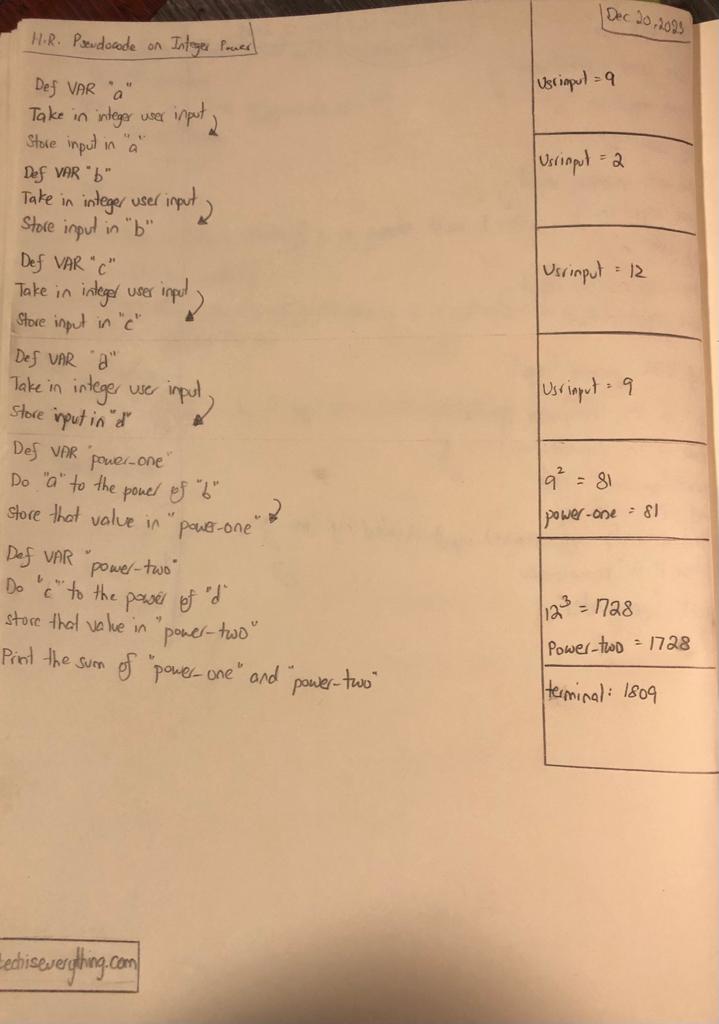 H.R. Pseudocode on Integer Power
Dec 20, 2023
Def VAR "a"
Take in integer user input
Store input in "a"
Def VAR "b"
Take in integer user input
Store input in "b"
Def VAR "c"
Take in integer user input
Store input in "c"
Def VAR "d"
Take in integer user input
Store input in "d"
Def VAR "power-one"
Do "a" to the power of "b"
store that value in "power-one"
Def VAR "power-two"
Do "c" to the power of "d"
store that value in "power-two"
Print the sum of "power-one" and "power-two"
Usrinput = 9
Usrinput = 2
Usrinput = 12
Usrinput = 9
9² = 81
power-one = 81
12³ = 1728
Power-two = 1728
terminal: 1809
techiseverything.com